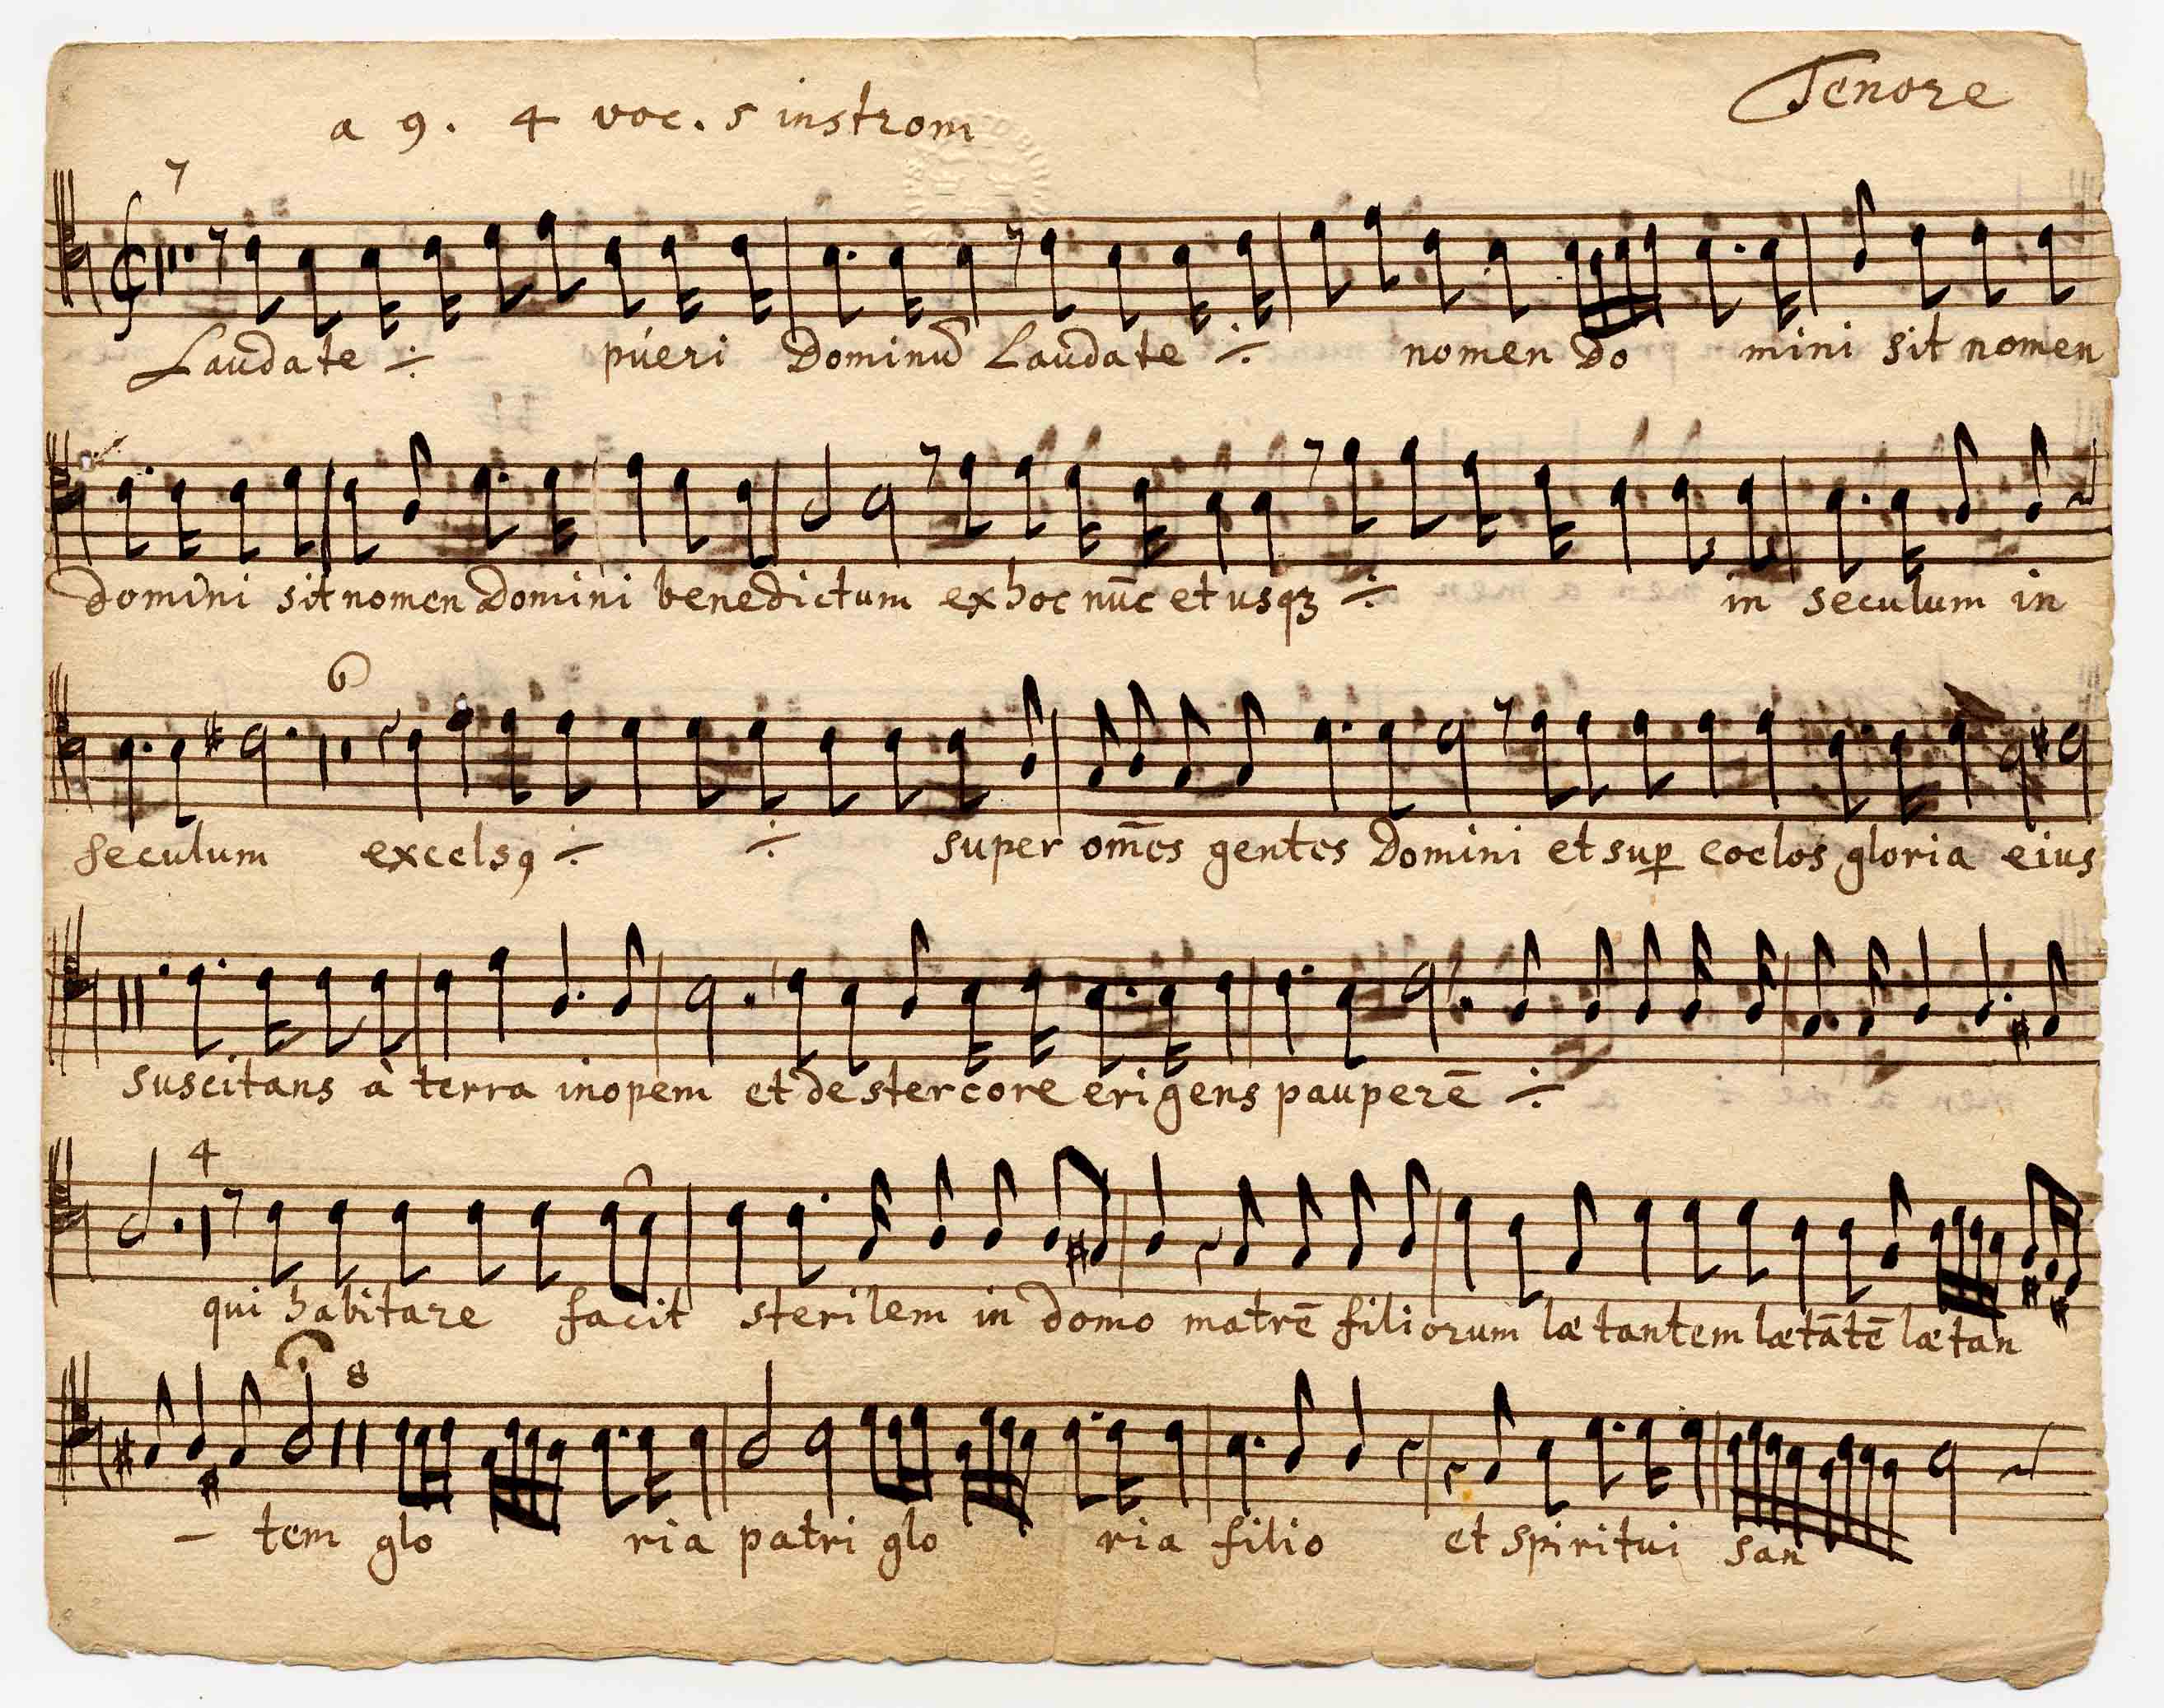 Tenore
a 9. 4 voc. 5 instrom
7
Laudate ÷ púeri Dominū Laudate ÷ nomen Do mini sit nomen
domini sit nomen Domini benedictum ex hoc nūc et usqꝫ ÷ in seculum in
6
seculum excelsꝯ ÷ ÷ super om̄es gentes Domini et suꝑ coelos gloria eius
suscitans à terra inopem et de stercore erigens pauperē ÷
4
qui habitare facit sterilem in domo matrē filiorum lætantem lætātē lætan
8
– tem glo ria patri glo ria filio et spiritui san